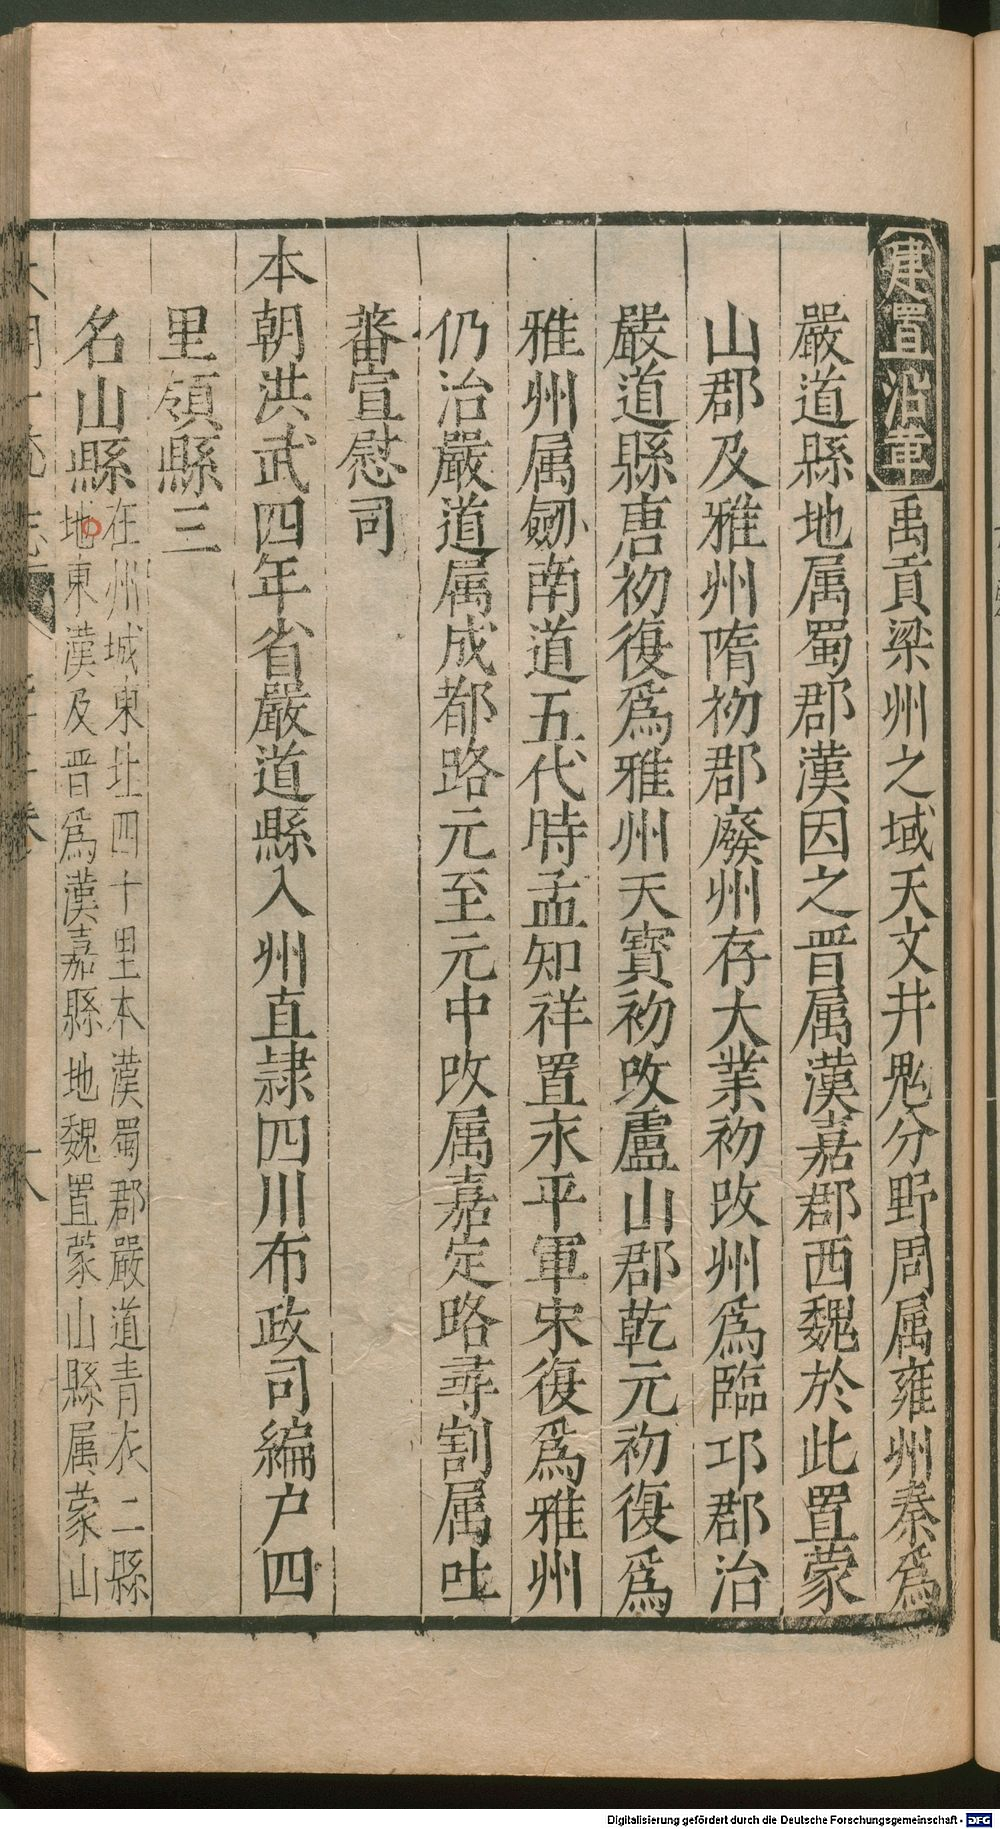 建置沿革禹貢梁州之域天文井鬼分野周属雍州秦爲
嚴道縣地属蜀郡漢因之晋属漢嘉郡西魏於此置蒙
山郡及雅州隋初郡廢州存大業初改州爲臨邛郡治
嚴道縣唐初復爲雅州天寳初改盧山郡乾元初復爲
雅州属劒南道五代時孟知祥置永平軍宋復爲雅州
仍治嚴道属成都路元至元中改属嘉定路尋割属吐
蕃宣慰司
本朝洪武四年省嚴道縣入州直隷四川布政司編户四
里領縣三
名山縣在州城東北四十里本漢蜀郡嚴道青衣二縣
地東漢及晋爲漢嘉縣地魏置蒙山縣属蒙山
Digitalisierung gefördert durch die Deutsche Forschungsgemeinschaft - DFG